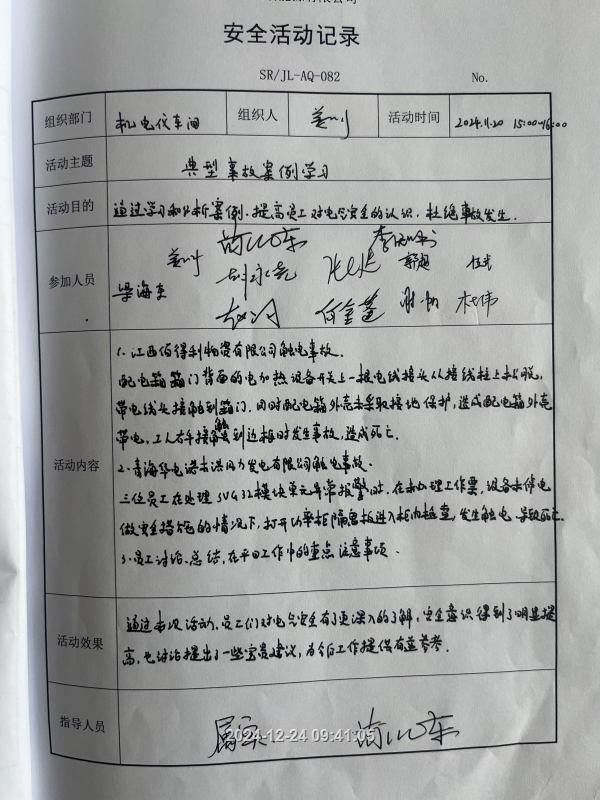 有限公司
安全活动记录
SR/JL-AQ-082 No.
组织部门 机电仪车间 组织人 活动时间 2024.11.20 15:00-16:00
活动主题 典型事故案例学习
活动目的 通过学习和分析案例、提高员工对电气安全的认识，杜绝事故发生.
参加人员
梁海东 刘永亮 郭超
何金蓬 杜伟
活动内容
1、江西佰得利物资有限公司触电事故.
配电箱箱门背面的电加热设备开关上一根电线接头从接线柱上松脱,
带电线头接触到箱门.同时配电箱外壳未采取接地保护,造成配电箱外壳
带电,工人右手接触到边框时发生事故,造成死亡.
2、青海华电诺木洪风力发电有限公司触电事故.
三位员工在处理SVG32模块单元异常报警时.在未办理工作票,设备未停电
做安全措施的情况下,打开功率柜隔离板进入柜内检查,发生触电,导致死亡.
3、员工讨论、总结,在平日工作中的重点注意事项.
活动效果 通过本次活动,员工们对电气安全有了更深入的了解,安全意识得到了明显提
高,也讨论提出了一些宝贵建议,为今后工作提供有益参考.
指导人员
2024-12-24 09:41:05